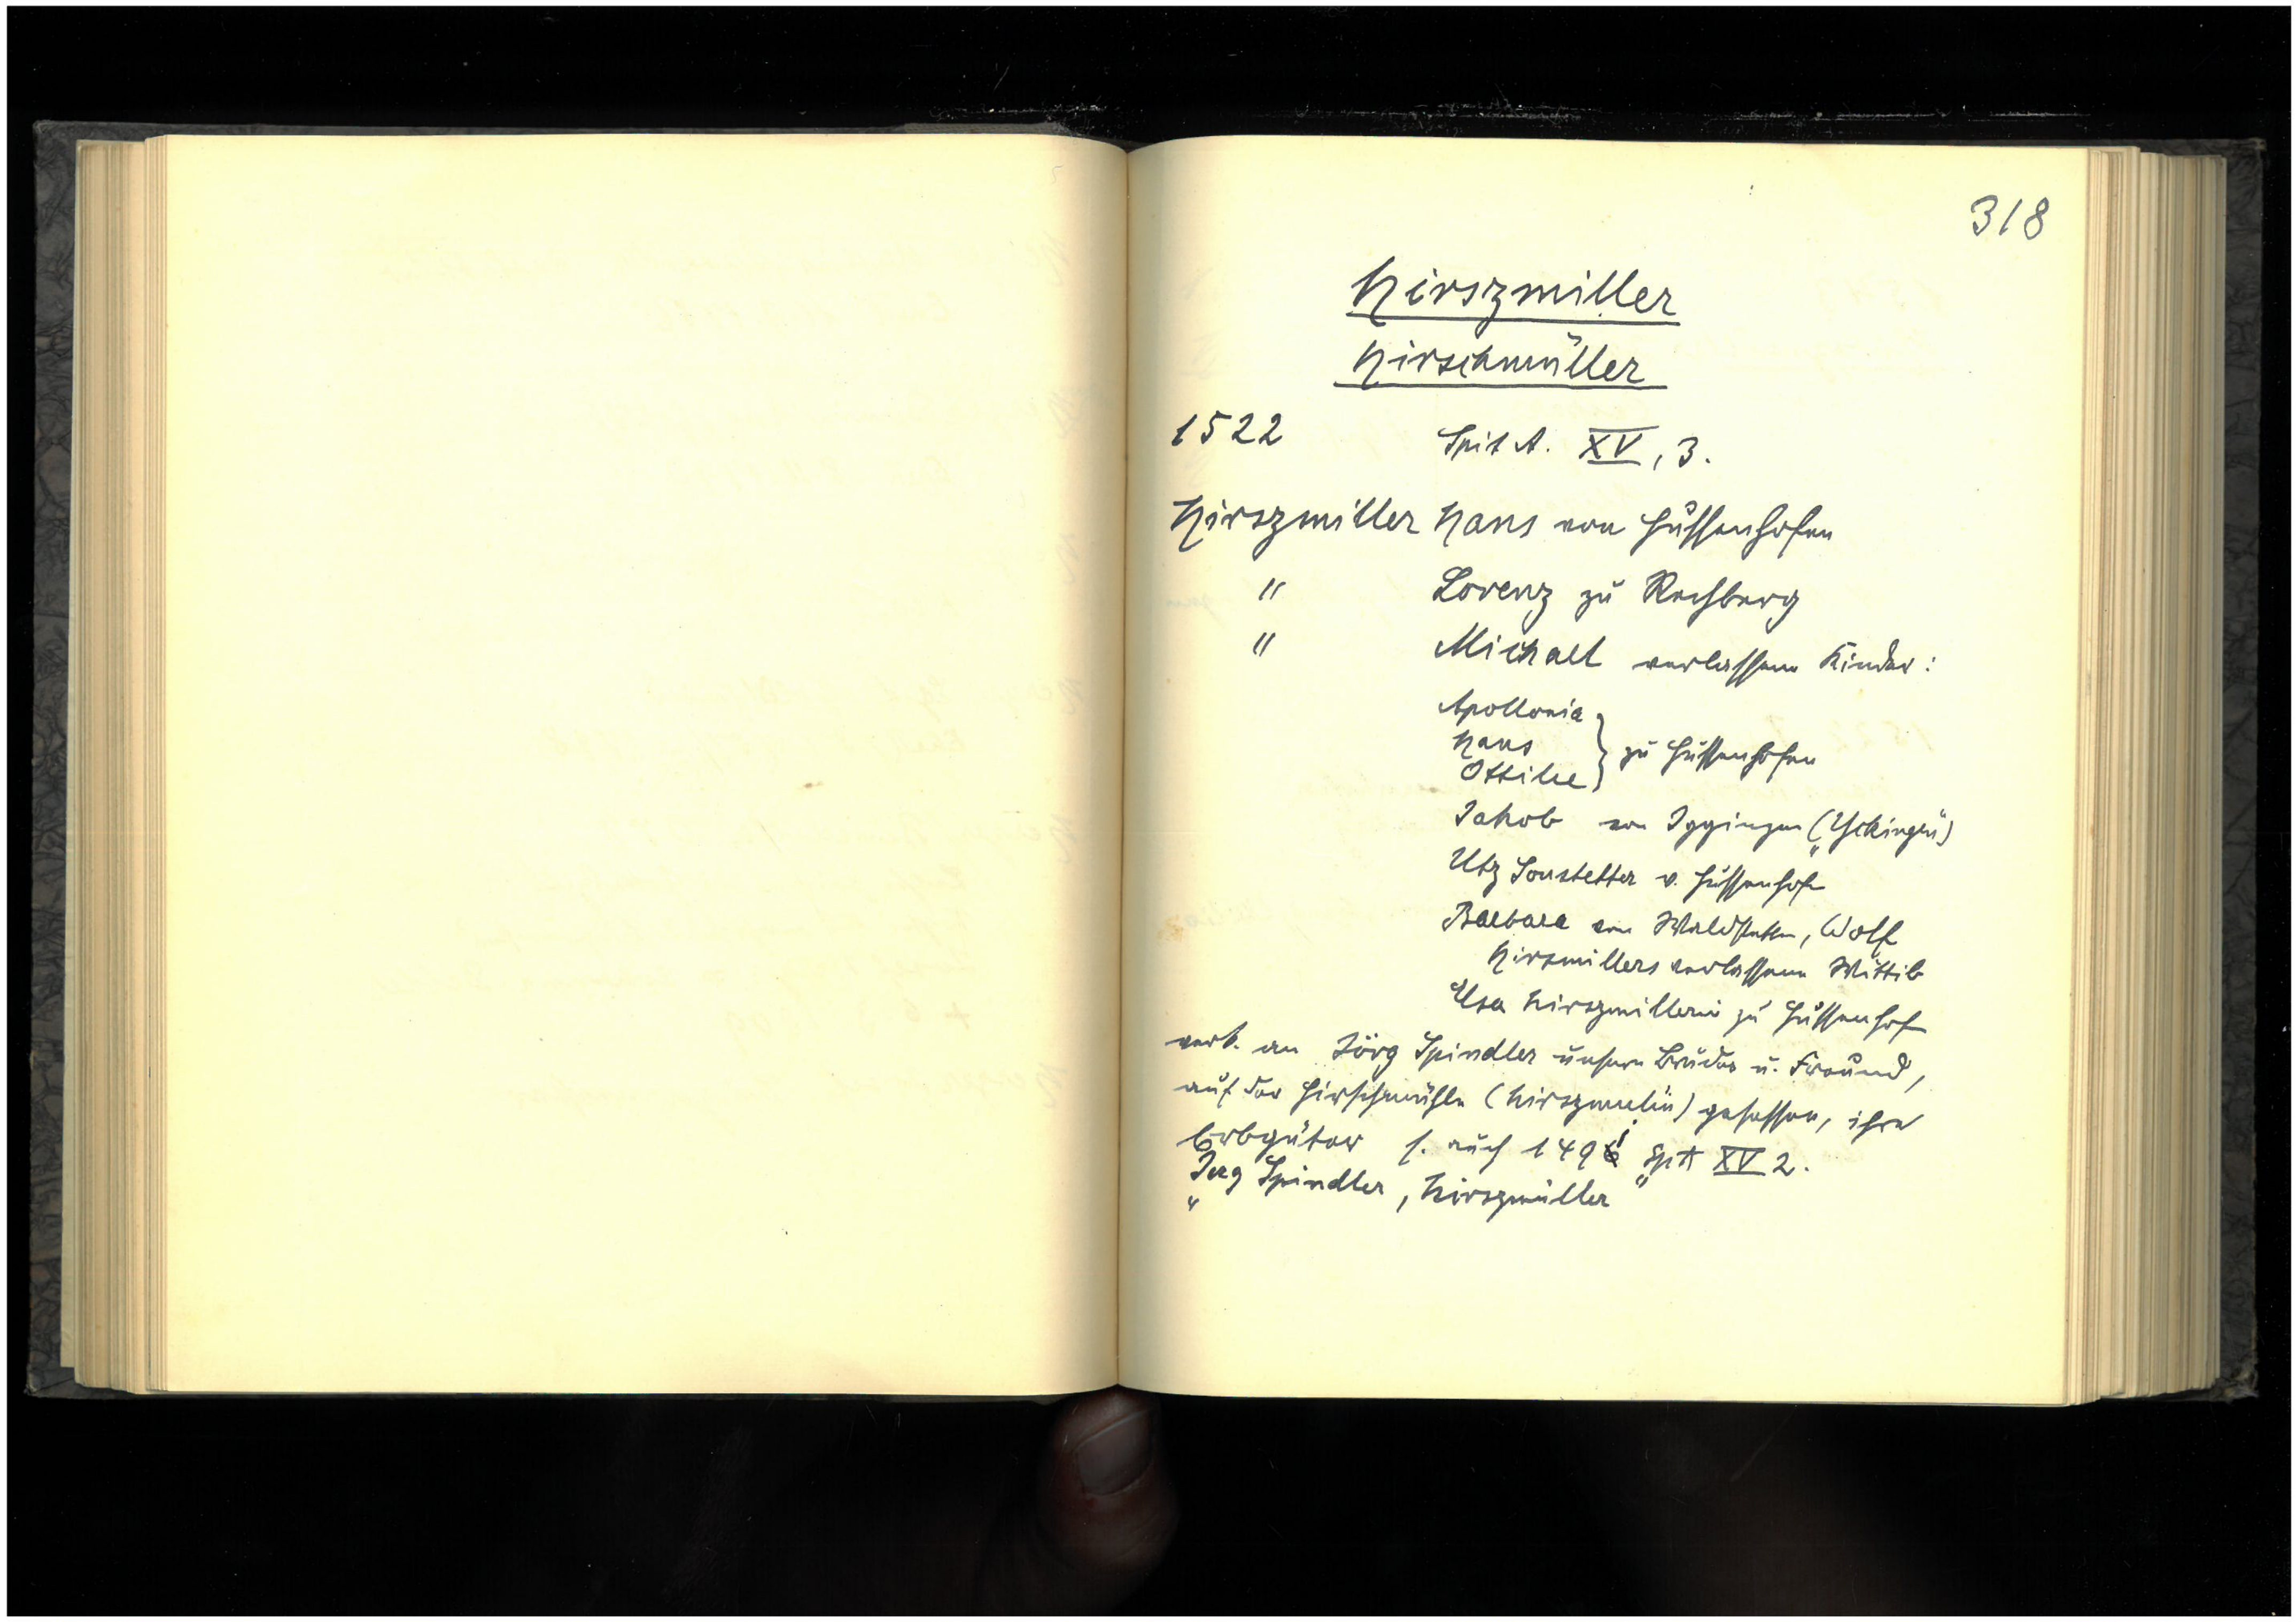 318
Hirszmiller
Hirschmüller
1522 Spit A. XV, 3.
Hirszmiller Hans von Hussenhofen
" Lorenz zu Rechberg
" Michael verlassene Kinder:
Apollonia
Hans } zu Hussenhofen
Ottilie
Jakob von Iggingen („Yckingen")
Utz Sonstetter v. Hussenhof
Barbara von Waldstetten, Wolf
Hirsmillers verlassene Wittib
Elsa Hirszmillerin zu Hussenhof
verk. an Jörg Spindler unsern Bruder u. Freund,
auf der Hirschmühle (Hirszmulin) gesessen, ihre
Erbgüter s. auch 1491 SpA XV 2.
„Jerg Spindler, Hirszmüller"